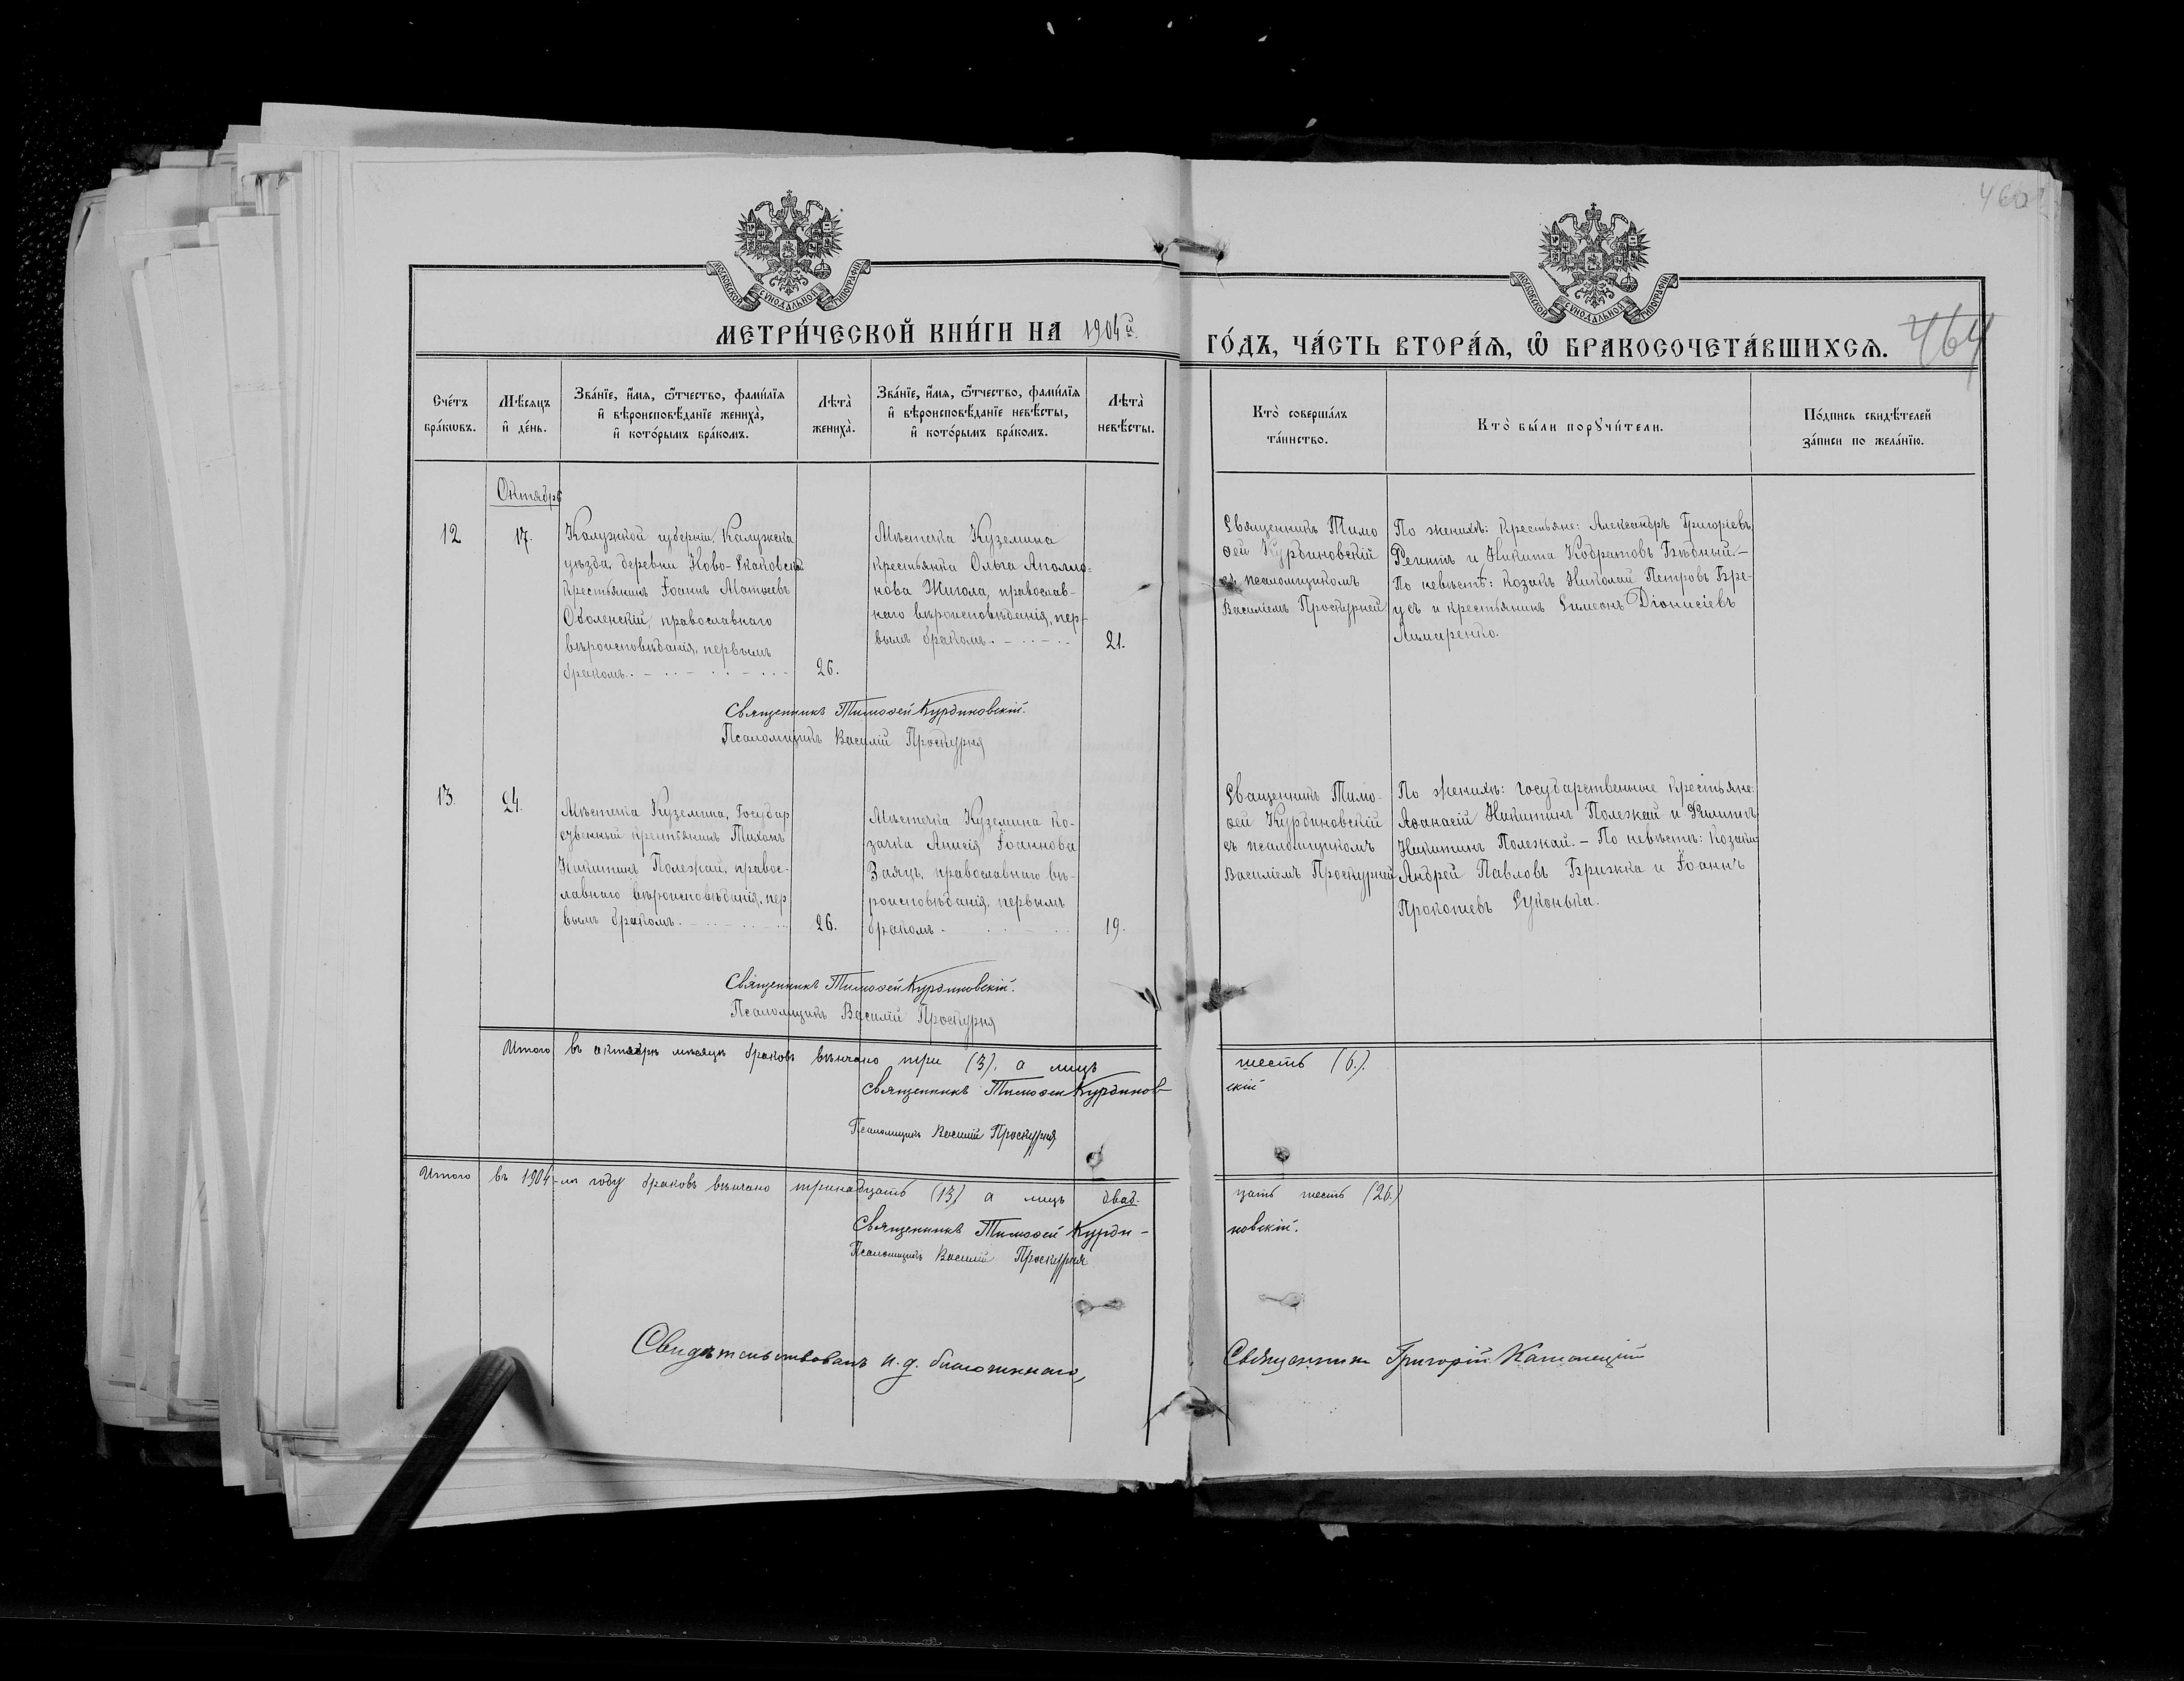 460
МОСКОВСКОЙ СѴНОДАЛЬНОЙ ТИПОГРАФІИ
МОСКОВСКОЙ СѴНОДАЛЬНОЙ ТИПОГРАФІИ
МЕТРИ́ЧЕСКОЙ КНИ́ГИ НА 1904й.
ГО́ДЪ, ЧА́СТЬ ВТОРА́Я, Ѡ БРАКОСОЧЕТА́ВШИХСЯ. 464
Сче́тъ
бра́кѡвъ.
Мѣ́сяцъ
и҆ де́нь.
Зва́нїе, и҆́мя, ѻ҆́тчество, фами́лїя
и҆ вѣроисповѣ́данїе жениха̀,
и҆ кото́рымъ бра́комъ.
Лѣта̀
жениха̀.
Зва́нїе, и҆́мя, ѻ҆́тчество, фами́лїя
и҆ вѣроисповѣ́данїе невѣ́сты,
и҆ кото́рымъ бра́комъ.
Лѣта̀
невѣ́сты.
Кто̀ соверша́лъ
та́инство.
Кто̀ бы́ли порꙋчи́тели.
По́дпись свидѣ́телей
за́писи по жела́нїю.
Октябрь
12
17.
Калужкой губерніи, Калужска
уѣзда, деревни Ново-Скаковской
крестьянинъ Іоаннъ Матѳеевъ
Оболенскій, православнаго
вѣроисповѣданія, первымъ
бракомъ.
26.
Мѣстечка Куземина
крестьянка Ольга Аполло-
нова Жигола, православ-
наго вѣроисповѣданія, пер-
вымъ бракомъ.
21.
Священникъ Тимо
ѳей Курдиновскій
съ псаломщикомъ
Василіемъ Проскурней
По женихѣ: крестьяне: Александръ Григоріевъ
Репитъ и Никита Кодратовъ Бѣдный.–
По невѣстѣ: козакъ Николай Петровъ Бре-
усъ и крестьянинъ Симеонъ Діонисіевъ
Лимаренко.
Священникъ Тимоѳей Курдиновскій.
Псаломщикъ Василій Проскурня
13.
24.
Мѣстечка Куземина, Государ
ственный крестьянинъ Тихонъ
Никитинъ Полежай, правос-
лавнаго вѣроисповѣданія, пер
вымъ бракомъ.
26.
Мѣстечка Куземина ко-
зачка Анисія Іоаннова
Заяцъ, православнаго вѣ-
роисповѣданія, первымъ
бракомъ
19.
Священникъ Тимо-
ѳей Курдиновскій
съ псаломщикомъ
Василіемъ Проскурней
По женихѣ: Государственные крестьяне:
Аѳанасій Никитинъ Полежай и Филиппъ
Никитинъ Полежай. – По невѣстѣ: Козаки:
Андрей Павловъ Брижка и Іоаннъ
Прокопіевъ Суконька.
Священникъ Тимоѳей Курдиновскій.
Псаломщикъ Василій Проскурня
Итого въ октябрѣ мѣсяцѣ браковъ вѣнчано три (3), а лицъ шесть (6.).
Священникъ Тимоѳей Курдинов-
скій
Псаломщикъ Василій Проскурня
Итого въ 1904-мъ году браковъ вѣнчано тринадцать (13) а лицъ двад-
цать шесть (26.)
Священникъ Тимоѳей Курди-
новскій.
Псаломщикъ Василій Проскурня
Свидѣтельствовалъ и. д. благочиннаго,
Священникъ Григорій